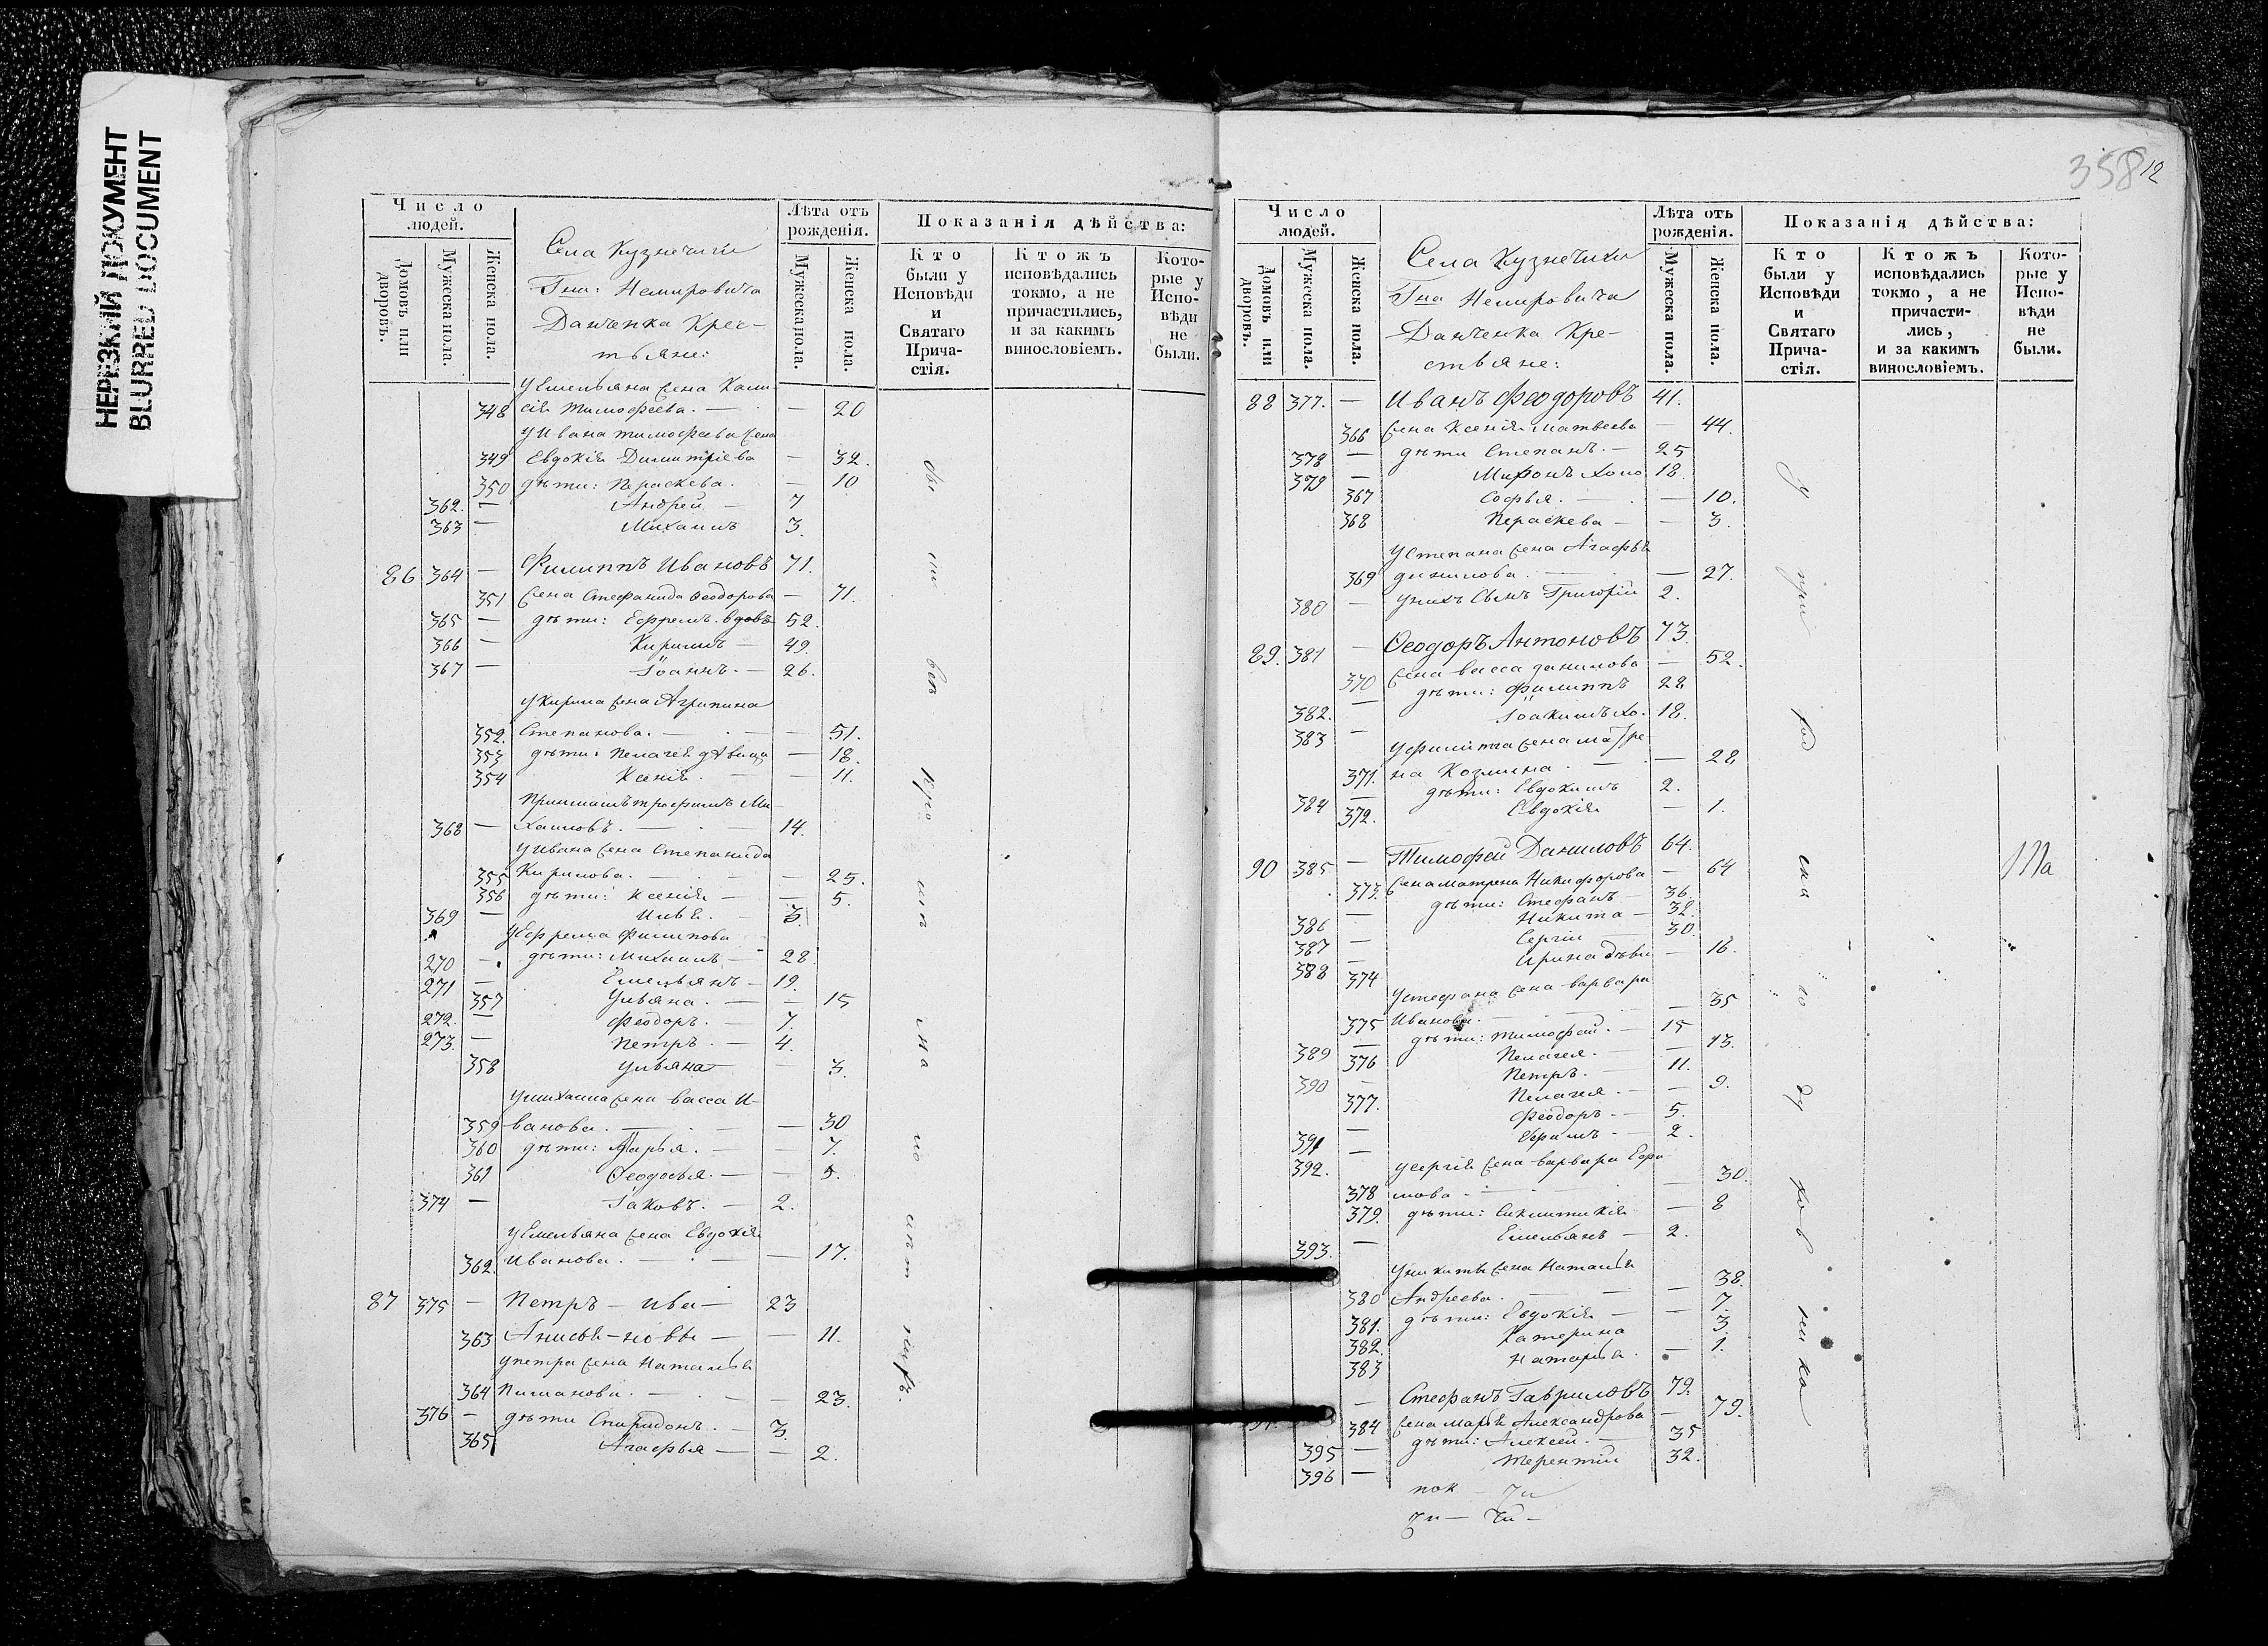 НЕРЕЗКИЙ ДОКУМЕНТ
BLURRED DOCUMENT
Число людей.
Домовъ или дворовъ.
Мужеска пола.
Женска пола.
Села Кузнечихи
Гна: Немировича
Данченка Крес-
тьяне:
Лѣта отъ рожденія.
Мужеска пола.
Женска пола.
Показанія дѣйства:
Кто были у Исповѣди и Святаго Прича-стія.
Ктожъ исповѣдались токмо, а не причастились, и за какимъ винословіемъ.
Кото-рые у Испо-вѣди не были.
У Емельяна жена
348 Тимофеева. — — 20
У Ивана Тимофеева жена
349 Евдокія Димитріева — 32.
350 дѣти: Параскева. — 10
362. — Андрей — 7
363 — Михаилъ 3.
86 364 — Филиппъ Ивановъ 71.
351 жена Стефанида Ѳеодорова — 71.
365 — дѣти: Ефремъ вдовъ 52.
366 — Кирилъ — 49.
367 — Іоаннъ. — 26.
У Кирила жена Агрипина
352. Степанова. — — 51.
353 дѣти: Пелагея дѣвица — 18.
354 Ксенія. — — 11.
Трофимъ Ми-
368 — хаиловъ. — 14.
У Ивана жена Степанида
355 Кирилова. — — 25.
356 дѣти: Ксенія — — 5.
369 — Илья. 3.
У Ефрема Филипова
270 — дѣти: Михаилъ — 28.
271 — Емельянъ — 19.
357 Ульяна. — — 15
272. — Феодоръ. — 7.
273. — Петръ. — 4.
358 Ульяна — — 3.
У Михаила жена Васса И-
359 ванова. — — 30
360 дѣти: Марья. — — 7.
361 Ѳеодосья. — — 5.
374 — Іаковъ. — 2.
У Емельяна жена Евдокія
362. Иванова. — — 17.
87 375 — Петръ — Ива — 23
363 Анисья — новы — — 11.
У Петра жена Наталья
364 — — 23.
376 — дѣти Спиридонъ. — 3.
365 Агафья — — 2.
358 12
Число людей.
Домовъ или дворовъ.
Мужеска пола.
Женска пола.
Села Кузнечихи
Гна Немировича
Данченка Кре-
стьяне:
Лѣта отъ рожденія.
Мужеска пола.
Женска пола.
Показанія дѣйства:
Кто были у Исповѣди и Святаго Прича-стія.
Ктожъ исповѣдались токмо, а не причасти-лись, и за какимъ винословіемъ.
Кото-рые у Испо-вѣди не были.
88 377. — Иванъ Феодоровъ 41.
366 жена Ксенія Матвеева — 44.
378 — дѣти Степанъ. — 25
379 — Миронъ Холо 18.
367 Софья. — — 10.
368 Параскева — — 3.
У Степана жена Агафья
369 Данилова. — — 27.
380 — У нихъ сынъ Григорій 2.
89. 381 — Ѳеодоръ Антоновъ 73.
370 жена Васса Данилова — 52.
382. — дѣти: Филиппъ 28
383 — Іоакимъ хо. 18.
У Филиппа жена Матре
371. на Козмина. — — 28
384 — дѣти: Евдокимъ 2.
372. Евдокія — 1.
90 385 — Тимофей Даниловъ 64.
373. жена Матрена Никифорова — 64
386 — дѣти: Стефанъ — 36.
387 — Никита — 32.
388 — Сергій — 30.
374 Ирина дѣви — 16.
У Стефана жена Варвара
375 Иванова. — — 35
389 — дѣти: Тимофей. — 15
376 Пелагея. — — 13.
390 — Петръ. — 11.
377. Пелагея. — — 9.
391 — Феодоръ. — 5.
392. — Ефимъ. — 2.
У Сергія жена Варвара Ефи
378 мова. — — 30.
379. дѣти: Синклитикія — 8
393. — Емельянъ — 2.
У Никиты жена Наталья
380 Андреева. — — 38.
381. дѣти: Евдокія — — 7.
382. Катерина 3.
383 Наталья. — 1.
— Стефанъ Гавриловъ 79.
384 жена Марья Александрова — 79.
395 — дѣти: Алексей. — 35
396 — Терентій 32.